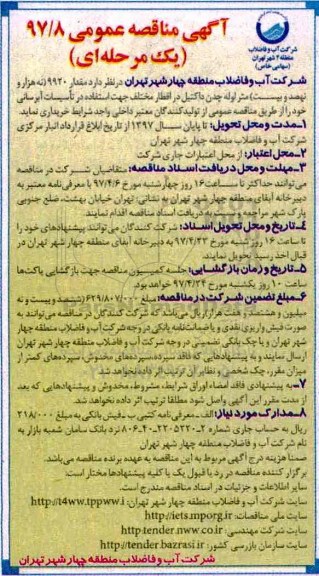 شرکت آب و فاضلاب
منطقه ۴ شهر تهران
(سهامی خاص)
آگهی مناقصه عمومی ۹۷/۸
(یک مرحله‌ای)
شرکت آب و فاضلاب منطقه چهار شهر تهران در نظر دارد مقدار ۹۹۲۰ (نه هزار و
نهصد و بیست) متر لوله چدن داکتیل در اقطار مختلف جهت استفاده در تأسیسات آبرسانی
خود را از طریق مناقصه عمومی از تولیدکنندگان معتبر داخلی واجد شرایط خریداری نماید.
۱ـ مدت و محل تحویل: تا پایان سال ۱۳۹۷ از تاریخ ابلاغ قرارداد انبار مرکزی
شرکت آب و فاضلاب منطقه چهار شهر تهران
۲ـ محل اعتبار: از محل اعتبارات جاری شرکت
۳ـ مهلت و محل دریافت اسناد مناقصه: متقاضیان شرکت در مناقصه
می‌توانند حداکثر تا ساعت ۱۶ روز چهارشنبه مورخ ۹۷/۴/۶ با معرفی‌نامه معتبر به
دبیرخانه آبفای منطقه چهار شهر تهران به نشانی: تهران خیابان بهشت، ضلع جنوبی
پارک شهر مراجعه و نسبت به دریافت اسناد مناقصه اقدام نمایند.
۴ـ تاریخ و محل تحویل اسناد: شرکت کنندگان می‌توانند پیشنهادهای خود را
تا ساعت ۱۶ روز شنبه مورخ ۹۷/۴/۲۳ به دبیرخانه آبفای منطقه چهار شهر تهران در
قبال اخذ رسید تحویل نمایند.
۵ـ تاریخ و زمان بازگشایی: جلسه کمیسیون مناقصه جهت بازگشایی پاکت‌ها
ساعت ۱۰ روز یکشنبه مورخ ۹۷/۴/۲۴ خواهد بود.
۶ـ مبلغ تضمین شرکت در مناقصه: مبلغ ۶۲۹/۸۰۷/۰۰۰ (ششصد و بیست و نه
میلیون و هشتصد و هفت هزار) ریال می‌باشد که شرکت کنندگان در مناقصه می‌توانند به
صورت فیش واریزی نقدی و یا ضمانت‌نامه بانکی در وجه شرکت آب و فاضلاب منطقه چهار
شهر تهران و یا چک بانکی تضمینی در وجه شرکت آب و فاضلاب منطقه چهار شهر تهران
ارسال نمایند و به پیشنهادهایی که فاقد سپرده، سپرده‌های مخدوش، سپرده‌های کمتر از
میزان مقرر، چک شخصی و نظایر آن ترتیب اثر داده نخواهد شد.
۷ـ به پیشنهادی فاقد امضاء اوراق شرایط، مشروط، مخدوش و پیشنهادهایی که بعد
از مدت مقرر این آگهی واصل شود مطلقا ترتیب اثر داده نخواهد شد.
۸ـ مدارک مورد نیاز: الف ـ معرفی‌نامه کتبی ب ـ فیش بانکی به مبلغ ۲۱۸/۰۰۰
ریال به حساب جاری شماره ۲ـ۲۲۰۵۲۲۰ـ۴۰ـ۸۰۶ نزد بانک سامان شعبه بازار به
نام شرکت آب و فاضلاب منطقه چهار شهر تهران
ضمنا هزینه درج آگهی مربوط به این مناقصه به عهده برنده مناقصه می‌باشد.
برگزار کننده مناقصه در رد یا قبول یک یا کلیه پیشنهادها مختار است.
سایر اطلاعات و جزئیات در اسناد مناقصه مندرج است.
سایت شرکت آب و فاضلاب منطقه چهار شهر تهران: http://t4ww.tppww.i
سایت ملی مناقصات: http://iets.mporg.ir
سایت شرکت مهندسی: http:tender.nww.co.ir
سایت سازمان بازرسی کشور: http://tender.bazrasi.ir
شرکت آب و فاضلاب منطقه چهار شهر تهران